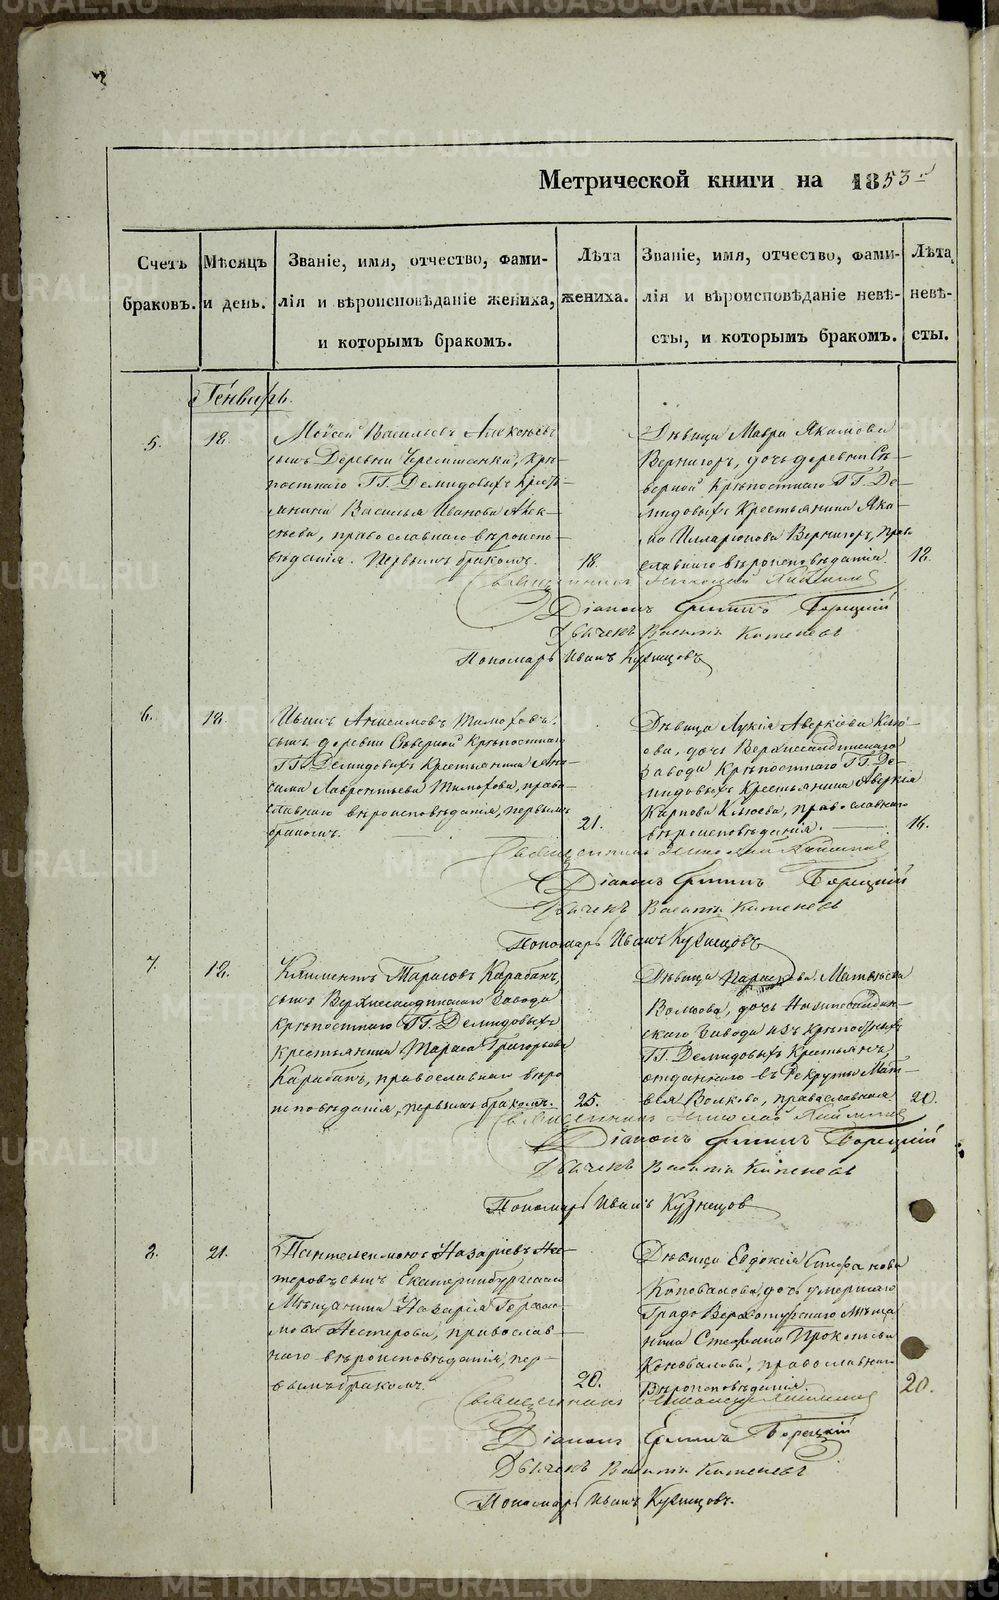 Метрической книги на 1853 й
Счетъ браковъ.
Мѣсяцъ и день.
Званіе, имя, отчество, фамилія и вѣроисповѣданіе жениха, и которымъ бракомъ.
Лѣта жениха.
Званіе, имя, отчество, фамилія и вѣроисповѣданіе невѣсты, и которымъ бракомъ.
Лѣта невѣсты.
Генварь.
5.
18.
Моисей Васильевъ
сынъ Деревни Крѣ-
постнаго ГГ. Демидовыхъ Кресть-
янина Василья Иванова Алек-
сѣева, православнаго вѣроиспо-
вѣданія. Первымъ бракомъ.
18.
Дѣвица Мавра Якимова
Вернигоръ, дочь деревни Сѣ-
верной Крѣпостнаго ГГ. Де-
мидовыхъ Крестьянина Яки-
ма Илларіонова Вернигоръ, Пра-
вославнаго вѣроисповѣданія.
18.
Священникъ Николай
Діаконъ Борецкій
Дьячекъ Василій
Пономарь Иванъ Кузнецовъ
6.
18.
Иванъ Анисимовъ Тимофѣевъ
сынъ деревни Сѣверной Крѣпостнаго
ГГ. Демидовыхъ Крестьянина Ани-
сима Лаврентьева Тимофѣева, право-
славнаго вѣроисповѣданія, первымъ
бракомъ.
21.
Дѣвица Лукія Аверкіева Клю-
ева, дочь Верхнесалдинскаго
Завода Крѣпостнаго ГГ. Де-
мидовыхъ Крестьянина Аверкія
Карпова Клюева, православнаго
вѣроисповѣданія.
16.
Священникъ Николай
Діаконъ Борецкій
Дьячекъ Василій
Пономарь Иванъ Кузнецовъ
7.
18.
Климентъ Тарасовъ Карабанъ,
сынъ Верхнесалдинскаго Завода
крѣпостнаго ГГ. Демидовыхъ
крестьянина Тараса Григорьева
Карабанъ, православнаго вѣро
исповѣданія, первымъ бракомъ.
25.
Дѣвица Матвѣева
Волкова, дочь Нижнесалдин-
скаго Завода изъ крѣпостныхъ
ГГ. Демидовыхъ Крестьянъ,
отданнаго въ Рекруты Мат-
вѣя Волкова, православная
20.
Священникъ Николай
Діаконъ Борецкій
Дьячекъ Василій
Пономарь Иванъ Кузнецовъ
8.
21.
Пантелеимонъ Назаріевъ Не-
стеровъ сынъ Екатеринбургскаго
Мѣщанина Назарія
Нестерова, православ-
наго вѣроисповѣданія, пер-
вымъ бракомъ.
20.
Дѣвица Евдокія Стефанова
Коновалова, дочь умершаго
Града Верхотурскаго мѣща
нина Стефана Прокопьева
Коновалова, православнаго
Вѣроисповѣданія.
20.
Священникъ Николай
Діаконъ Борецкій
Дьячекъ Василій
Пономарь Иванъ Кузнецовъ.
METRIKI.GASO-URAL.RU